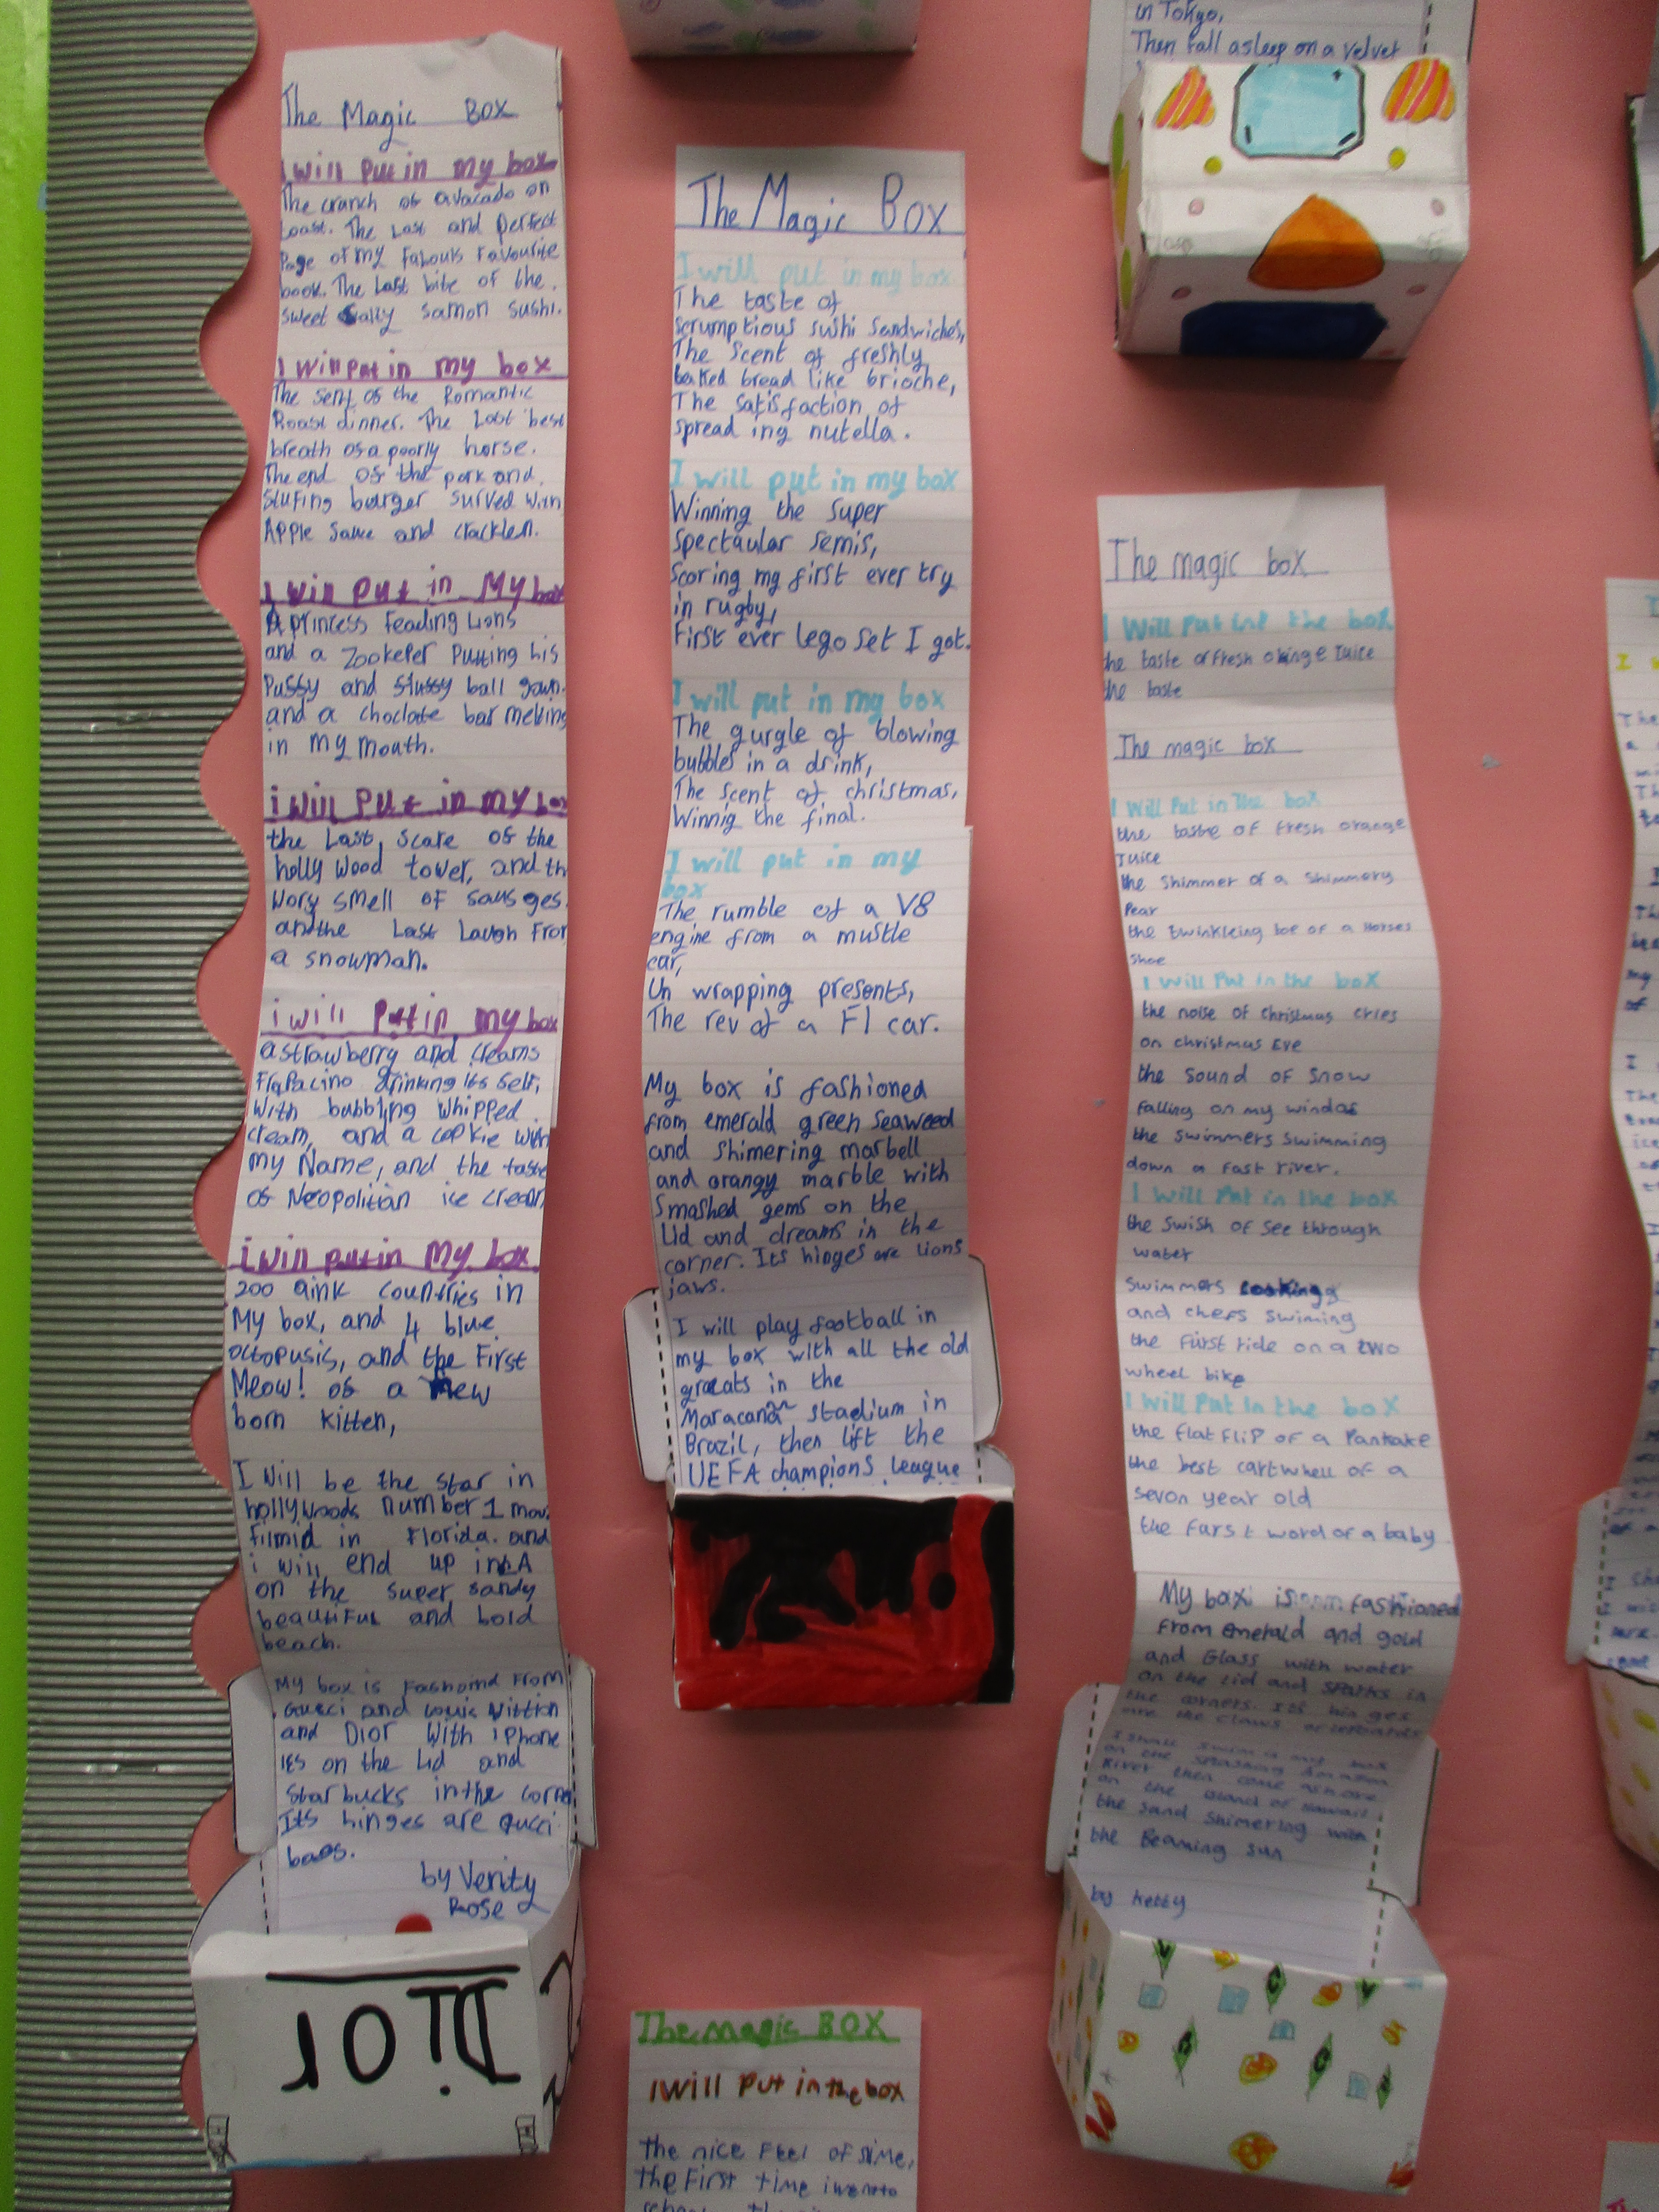 The Magic Box
I will put in my box
The cranch of avacado on
toast. The Last and perfect
Page of my fabouls favourite
book. The Last bite of the
sweet Sally samon sushi.
I will put in my box
The sent of the Romantic
Roast dinner. The Last best
breath of a poorly horse.
The end of the pork and
Stufing burger surved with
Apple Sauce and cracklen.
I will put in My box
A princess feading Lions
and a Zookefer Putting his
Pussy and Stussy ball gown.
and a choclate bar melking
in my mouth.
i will put in my box
the Last scare of the
holly wood tower, and th
wory smell of sausges.
and the Last Laugh Fror
a snowman.
i will Put in my box
a strawberry and creams
Frapacino drinking its self,
with bubbling whipped
cream, and a cookie with
my Name, and the taste
of Neopolitian ice cream
i will put in my box
200 aink countries in
My box, and 4 blue
octopusis, and the First
Meow! of a new
born kitten,
I will be the star in
hollywoods number 1 mov.
filmid in Florida. and
i will end up in LA
on the super sandy
beautiful and bold
beach.
My box is Fashomd From
Gucci and Louis Vittion
and Dior with iPhone
16s on the Lid and
Starbucks in the corner
Its hinges are Gucci
bags.
by Verity
Rose
Dior
The Magic Box
I will put in my box
The taste of
scrumptious sushi sandwiches,
The scent of freshly
baked bread like brioche,
The satisfaction of
spread ing nutella.
I will put in my box
Winning the super
spectaular semis,
Scoring my first ever try
in rugby,
First ever lego set I got.
I will put in my box
The gurgle of blowing
bubbles in a drink,
The scent of christmas,
Winnig the final.
I will put in my
box
The rumble of a V8
engine from a mustle
car,
Un wrapping presents,
The rev of a F1 car.
My box is fashioned
from emerald green seaweed
and shimering marbell
and orangy marble with
Smashed gems on the
Lid and dreams in the
corner. Its hinges are lions
jaws.
I will play football in
my box with all the old
greats in the
Maracanã stadium in
Brazil, then lift the
UEFA champions league
The magic BOX
I will Put in the box
The nice Feel of slime,
the First time i went to
in Tokyo,
Then fall asleep on a velvet
The magic box
I will Put int the box
the taste of fresh orange Juice
the taste
The magic box
I will Put in The box
the taste of fresh orange
Juice
the Shimmer of a Shimmery
Pear
the twinkleing toe of a Horses
Shoe
I will Put in the box
the noise of christmas cries
on christmas Eve
the sound of snow
falling on my windos
the swimmers swimming
down a fast river.
I will Put in the box
the swish of see through
water
swimmers
and chefs swiming
the Furst ride on a two
wheel bike
I will Put in the box
the flat flip of a Pankake
the best cartwhell of a
sevon year old
the farst word of a baby
My box is fashioned
from emerald and gold
and Glass with water
on the lid and sparks in
the corners. It's hinges
are the claws of
I shall swim in my box
on the splashing Amazon
River then come ashore
on the island of Hawaii
the sand Shimering with
the Beaming sun
by Ketty